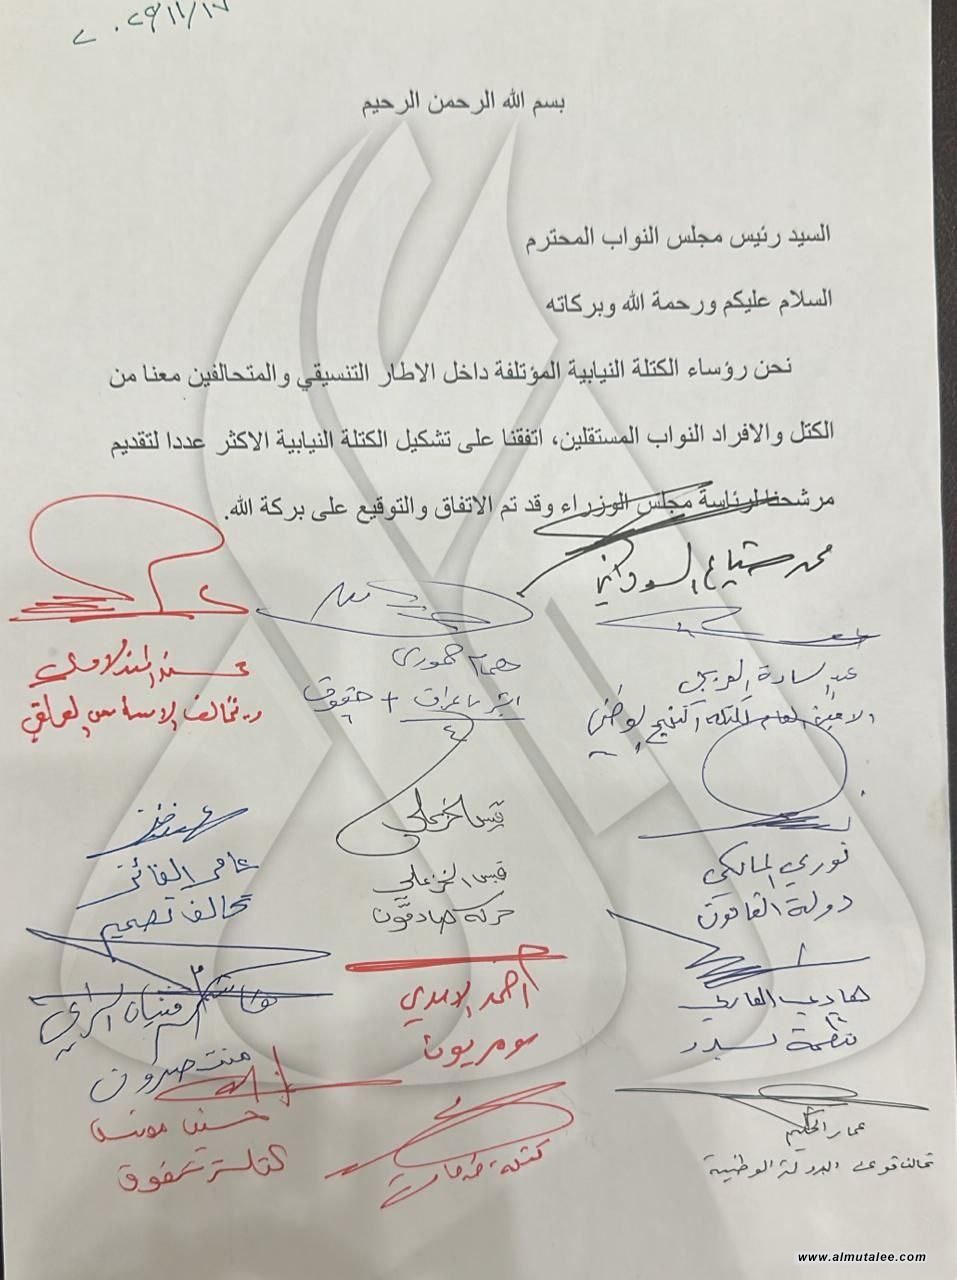 ٢٠٢٥/١١/١٧
بسم الله الرحمن الرحيم
السيد رئيس مجلس النواب المحترم
السلام عليكم ورحمة الله وبركاته
نحن رؤساء الكتلة النيابية المؤتلفة داخل الاطار التنسيقي والمتحالفين معنا من
الكتل والافراد النواب المستقلين، اتفقنا على تشكيل الكتلة النيابية الاكثر عددا لتقديم
مرشحنا لرئاسة مجلس الوزراء وقد تم الاتفاق والتوقيع على بركة الله.
محمد شياع السوداني
همام حمودي
ابشر يا عراق + حقوق
محسن المندلاوي
تحالف الاساس العراقي
الامين العام
نوري المالكي
دولة القانون
قيس الخزعلي
قيس الخزعلي
حركة صادقون
عامر الفائز
تحالف تصميم
هادي العامري
منظمة بدر
احمد الاسدي
سومريون
عمار الحكيم
تحالف قوى الدولة الوطنية
كتلة
حسين مونس
حقوق
www.almutalee.com